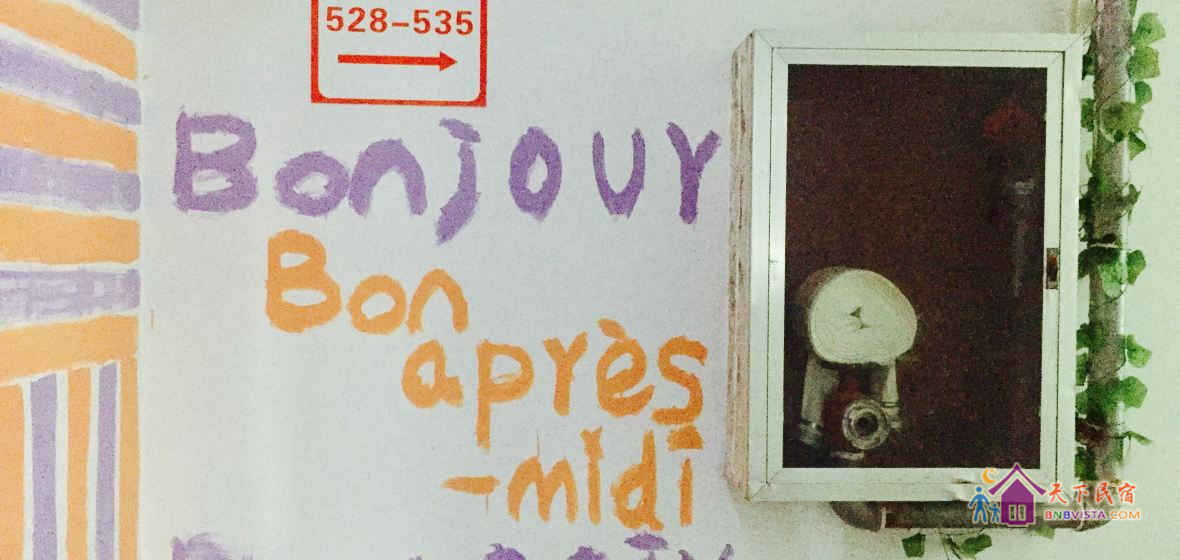 528-535
Bonjour
Bon
après
-midi
天下民宿
BNBVISTA.COM